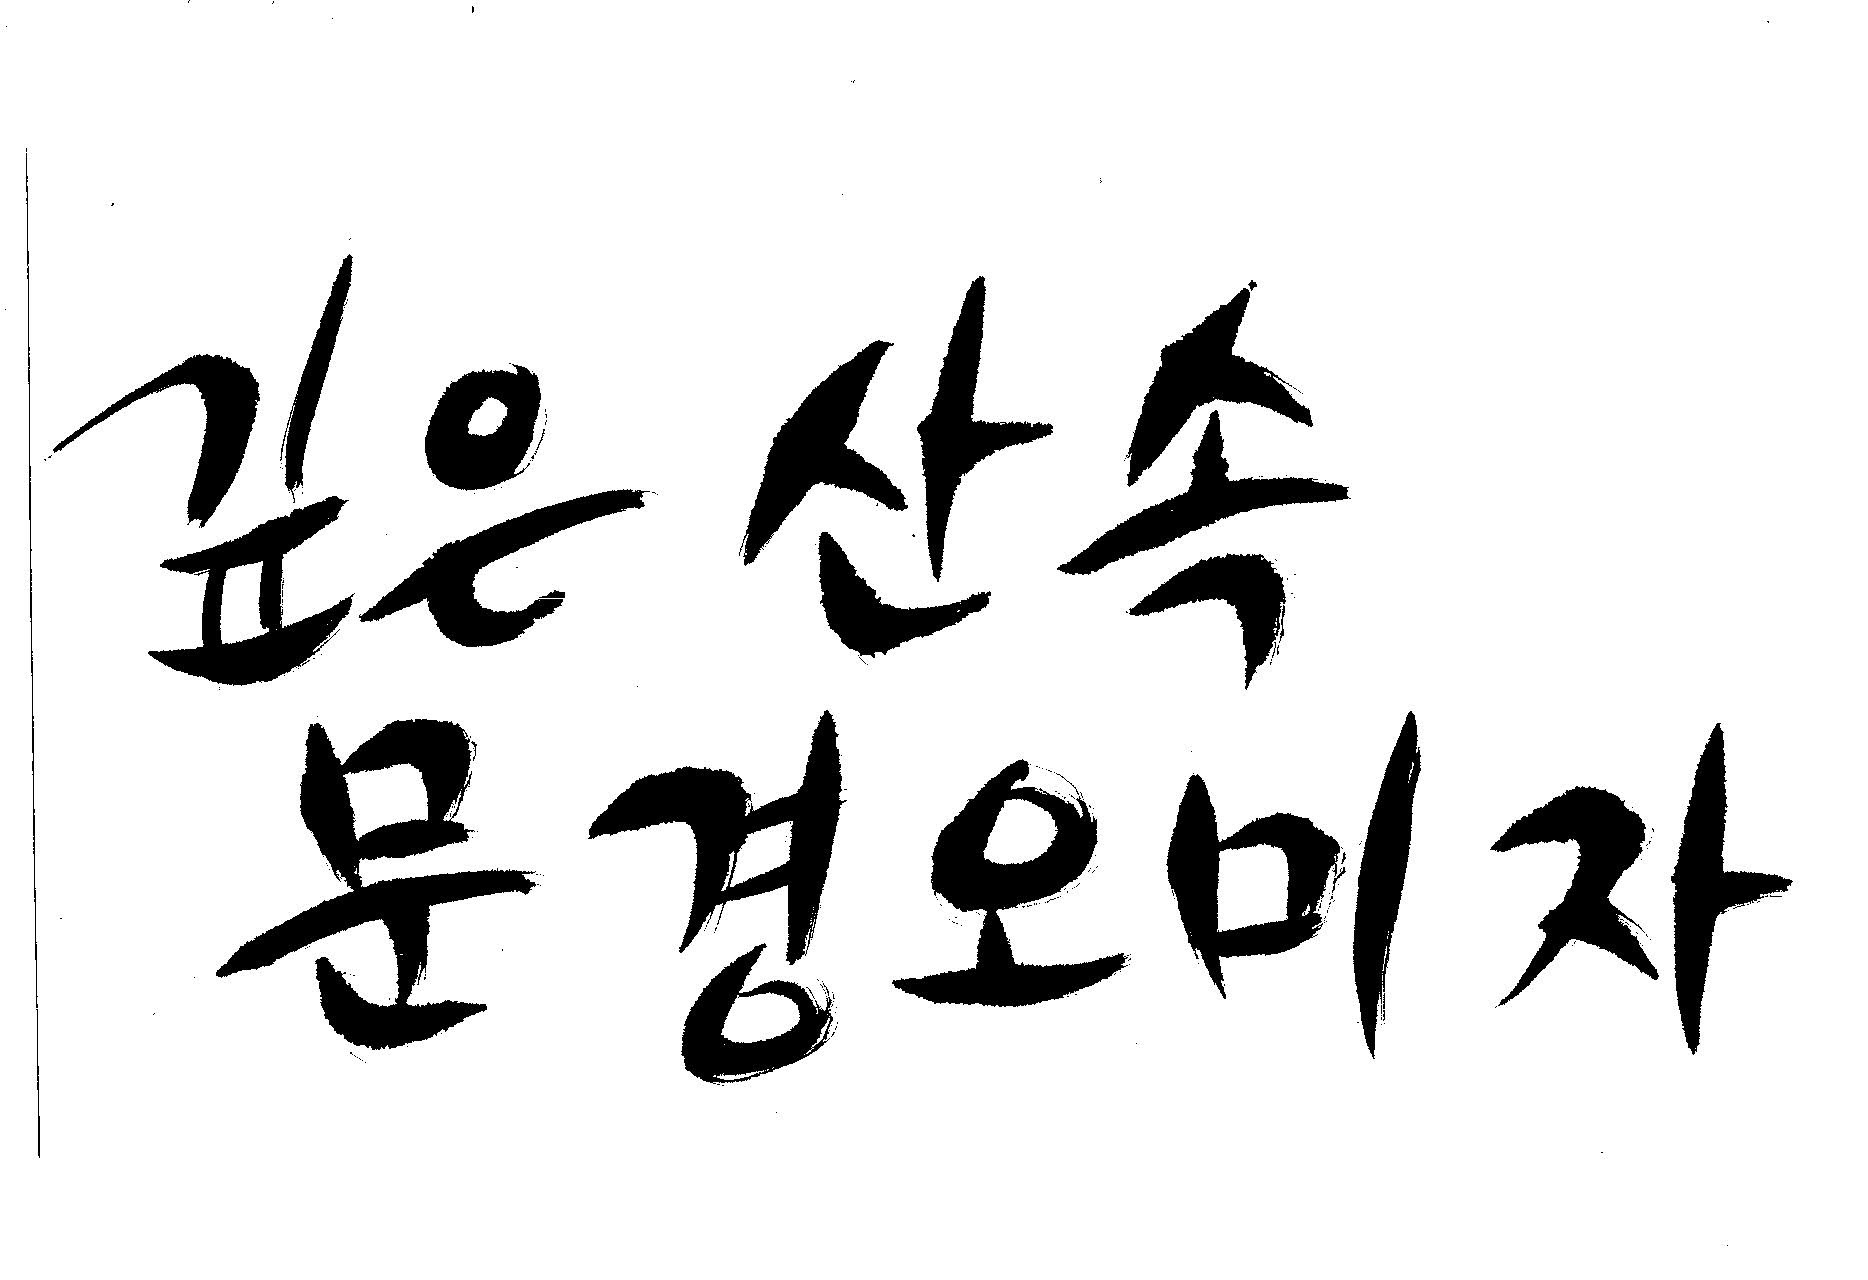 깊은 산속
문경오미자